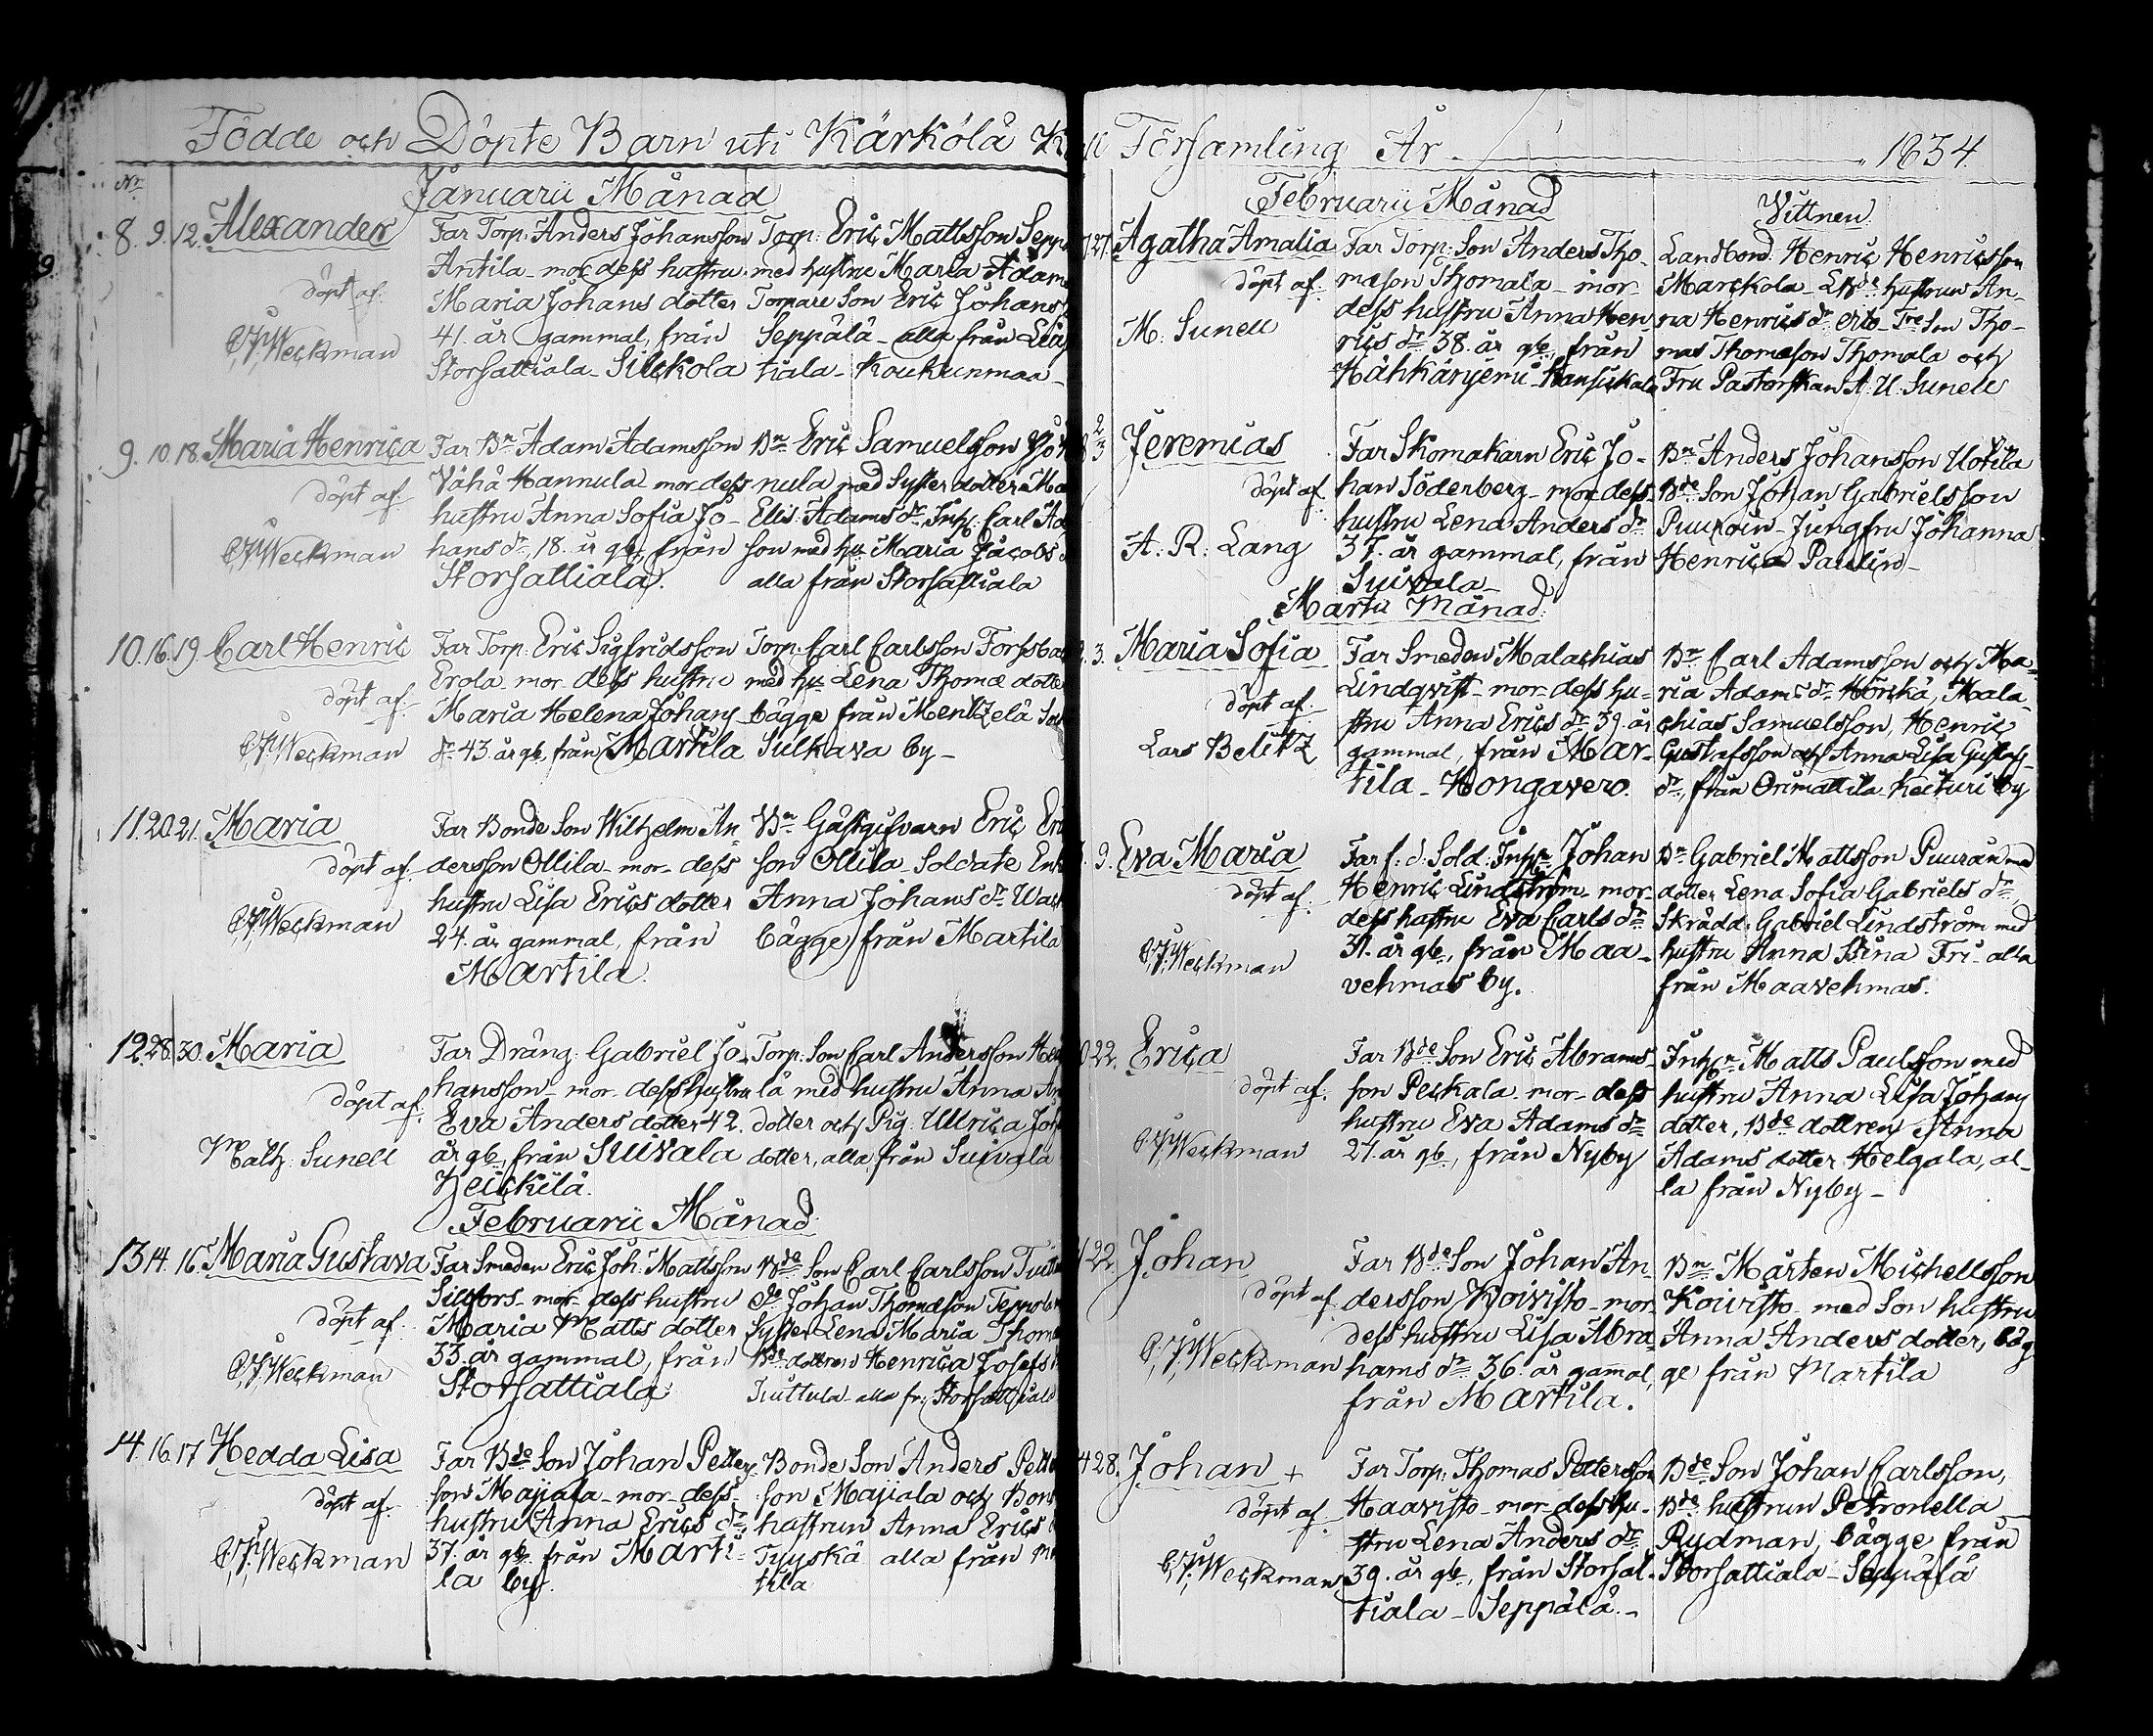 Födde och Döpte Barn uti Kärkölä
Januarii Månad
Nr
8. 9. 12. Alexander
döpt af.
Weckman
Far Torp: Anders Johansson
Antila - mor dess hustru
Maria Johans dotter
41. år gammal, från
Storsattiala - Silckola
Torp: Eric Mattsson
med hustru Maria
Torpare Son Eric
Seppälä - alla från
tiala - Koukunmaa -
9. 10. 18. Maria Henrica
döpt af.
Weckman
Far Bn Adam Adamsson
Vähä Hannula mor dess
hustru Anna Sofia Jo-
hans dr 18. år gb, från
Storsattiala.
Bn Eric Samuelsson
nula med Syster dotter
Elis. Adams dr Inh: Carl
son med hu Maria Jacobs
alla från Storsattiala
10. 16. 19. Carl Henric
döpt af.
Weckman
Far Torp: Eric Sigfridsson
Erola mor dess hustru
Maria Helena Johans
dr 43. år gb, från Martila
Torp: Carl Carlsson
med hu Lena Thomæ
bägge från Mentzelä
Sulkava by -
11. 20. 21. Maria
döpt af.
Weckman
Far Bonde Son Wilhelm An-
dersson Ollila - mor dess
hustru Lisa Erics dotter
24. år gammal, från
Martila.
Bn Gästgifvarn Eric
son Ollila - Soldate
Anna Johans dr
bägge från Martila
12. 28. 30. Maria
döpt af.
Math: Sunell
Far Dräng: Gabriel Jo-
hansson - mor dess hustru
Eva Anders dotter 42.
år gb, från Suivala
Heickilä.
Torp: Son Carl Andersson
lä med hustru Anna
dotter och Pig: Ulrica
dotter, alla från Suivala
Februarii Månad
13. 14. 16. Maria Gustava
döpt af.
Weckman
Far Smeden Eric Joh: Mattsson
Sillfors - mor dess hustru
Maria Matts dotter
33. år gammal, från
Storsattiala
Bde Son Carl Carlsson
Johan Thomasson
Syster Lena Maria
Bde dottren Henrica Josefs
alla fr: Storsattiala
14. 16. 17 Hedda Lisa
döpt af.
Weckman
Far Bde Son Johan Petters
son Majiala - mor dess
hustru Anna Erics dr
37. år gb, från Marti-
la by.
Bonde Son Anders
son Majiala och
hustrun Anna Erics
Tyyskä alla från
tila
Församling År 1834.
Februarii Månad
Vittnen
27. Agatha Amalia
döpt af.
M. Sunell
Far Torp: Son Anders Tho-
mason Thomala - mor
dess hustru Anna Hen-
rics dr 38. år gb, från
Hähkäniemi
Landbond: Henric Henricsson
Marckola - hustrun An-
na Henrics dr Son Tho-
mas Thomasson Thomala och
Fru Pastorskan A. U. Sunell
2
3 Jeremias
döpt af.
A. R. Lang
Far Skomakarn Eric Jo-
han Söderberg - mor dess
hustru Lena Anders dr
37. år gammal, från
Suivala -
Bn Anders Johansson Uotila
Bde Son Johan Gabrielsson
Jungfru Johanna
Henrica Paulin -
Martii Månad.
3. Maria Sofia
döpt af.
Lars Belitz
Far Smeden Malachias
Lindqvist - mor dess hu-
stru Anna Erics dr 39. år
gammal, från Mar-
tila - Hongavero.
Bn Carl Adamsson och Ma-
ria Adams dr Hörckä, Mala-
chias Samuelsson, Henric
Gustafsson och Anna Lisa Gustafs
dr, från Orimattila Heituri by
9. Eva Maria
döpt af.
Weckman
Far f. d. Sold: Inhn Johan
Henric Lindström - mor
dess hustru Eva Carls dr
31. år gb, från Maa-
vehmas by.
Bn Gabriel Mattsson Puurän med
dotter Lena Sofia Gabriels dr
Skrädd: Gabriel Lindström med
hustru Anna Stina Fri - alla
från Maavehmas.
22. Erica
döpt af.
Weckman
Far Bde Son Eric Abrams-
son Peckala - mor dess
hustru Eva Adams dr
27. år gb, från Nyby
Inhn Matts Paulsson med
hustru Anna Lisa Johans
dotter, Bde dottren Anna
Adams dotter Helgala, al-
la från Nyby -
22. Johan
döpt af.
Weckman
Far Bde Son Johan An-
dersson Koivisto - mor
dess hustru Lisa Abra-
hams dr 36. år gammal,
från Martila.
Bn Mårten Michellsson
Koivisto med Son hustru
Anna Anders dotter, bäg
ge från Martila
28. Johan +
döpt af.
Weckman
Far Torp: Thomas Pettersson
Haavisto - mor dess hu-
stru Lena Anders dr
39. år gb, från Storsat-
tiala - Seppälä -
Bde Son Johan Carlsson,
Bde hustrun Petronella
Rydman, bägge från
Storsattiala - Seppälä